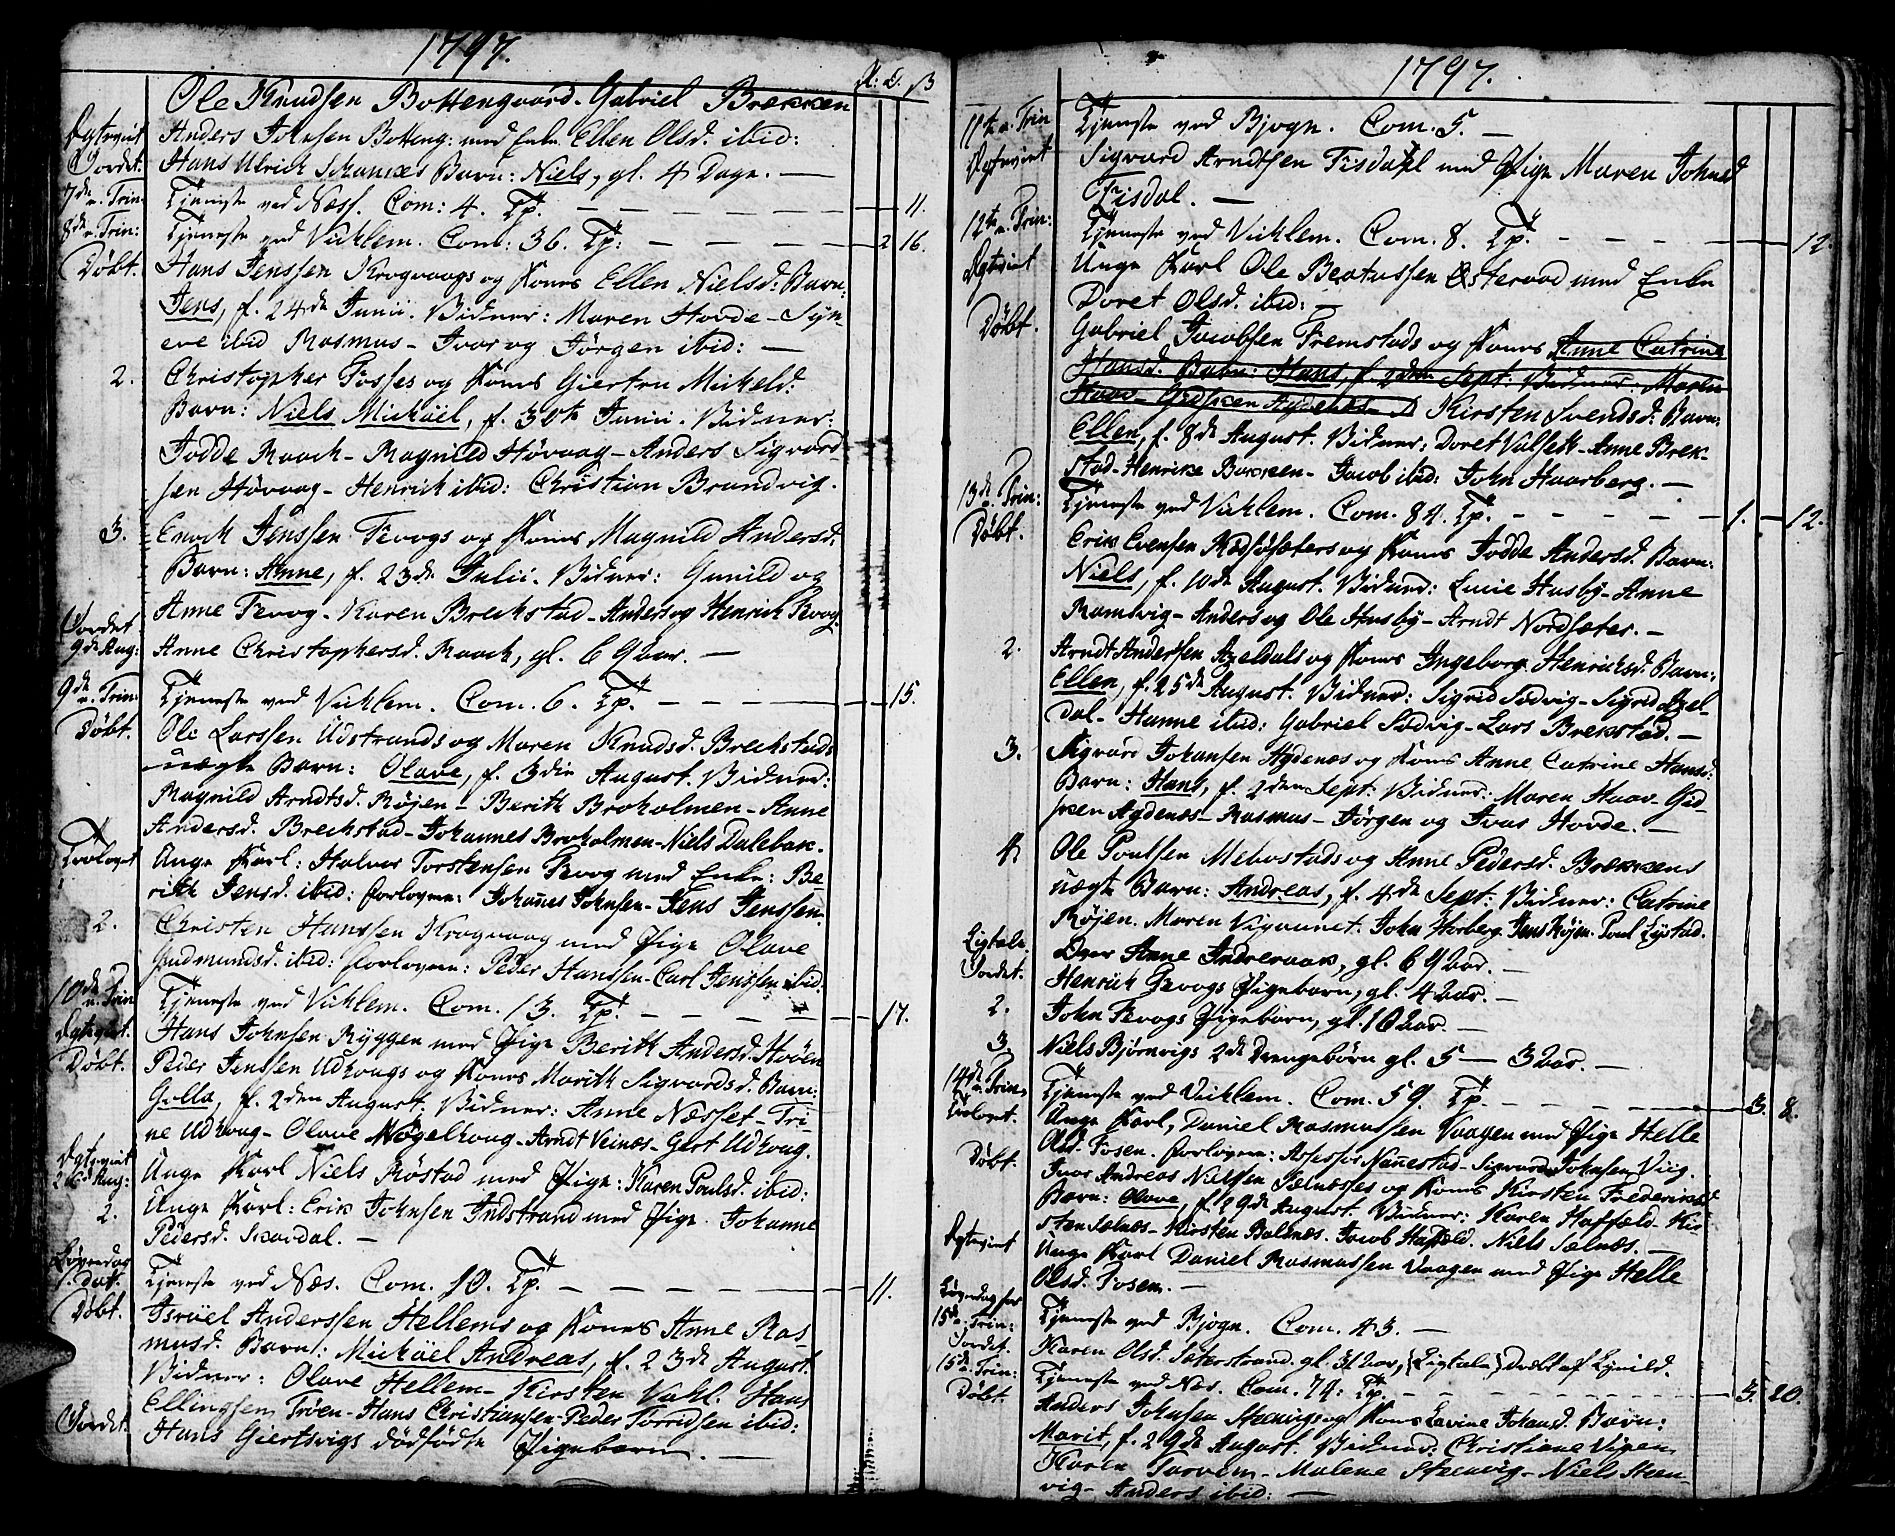 1797.
R: D. ß
Ole Knudsen Bottengaard. Gabriel Brekken
Ægtevint Anders Johnsen Botteng: med Enke Ellen Olsd. ibid:
Jordet: Hans Ulrich Schancks Barn: Niels, gl. 4 Dage. —
7de a. Trin. Tjeneste ved Næss. Com: 4. Tp. — 11.
8de a. Trin: Tjeneste ved Vicklem. Com: 36. Tp: — 2 16.
Døbt. Hans Jenssen Krogvaags og Kones Ellen Nielsd: Barn:
Jens, f. 24de Junii. Vidner: Maren Hovde - Syn-
eve ibid Rasmus - Ivar og Jørgen ibid: —
2. Christopher Fosses og Kones Giertru Mickelsd.
Barn: Niels Mickäel, f. 30te Junii. Vidner:
Jodde Raack - Magnild Høvaag - Anders Sigvard-
sen Høvaag - Henrick ibid: Christian Brandvig.
3. Enock Jenssen Tevogs og Kones Magnild Andersd.
Barn: Anne, f. 23de Julii. Vidner: Gunild og
Anne Tevog - Karen Breckstad - Anders og Henrick Tevog
Jordet 9de Aug: Anne Christophersd. Raack, gl. 69 aar. —
9de a. Trin: Tjeneste ved Vicklem. Com. 6. Tp. — 15.
Døbt. Ole Larssen Udstrands og Maren Knudsd. Breckstads
uægte Barn: Olave, f. 3die August. Vidner:
Magnild Arndtsd. Røjen - Berith Broholmen - Anne
Andersd. Breckstad - Johannes Broholmen - Niels Dalebak.
Trolovet Unge Karl: Halvor Torstensen Tevog med Enke: Be-
rith Jensd. ibid: forlovere: Johannes Johnsen - Jens Jenssen.
2. Christen Hanssen Krogvaag med Pige Olave
Gudmundsd. ibid: forlovere: Peder Hanssen - Carl Jenssen ibid:
10de a. Trin Tjeneste ved Vicklem. Com. 13. Tp. — 17.
Ægtevint. Hans Johnsen Ryggen med Pige Berith Andersd. Hoven
Døbt. Peder Jenssen Udhougs og Kones Marith Sigvardsd. Barn:
Golla, f. 2den August. Vidner: Anne Næsset - Tri-
ne Udhoug - Olave Nøgelhoug - Arndt Veinæs - Gert Udhoug.
Ægtevint 26de Aug: Unge Karl Niels Røstad med Pige: Karen Poulsd. ibid:
2. Unge Karl: Erik Johnsen Indstrand med Pige Johanne
Pedersd. Skavdal. —
Løverdag Tjeneste ved Næs. Com. 10. Tp. — 11.
Døbt. Israël Anderssen Hellems og Kones Anne Ras-
musd. Barn: Mickäel Andreas, f. 23de August.
Vidner: Olave Hellem - Kirsten Vahl. Hans
Ellingsen Trøen - Hans Christiansen - Peder Torridsen ibid:
Jordet. Hans Giertsvigs dødfødte Pigebarn. —
1797.
11te a. Trin Tjeneste ved Bjogn. Com. 5. —
Ægtevint Sigvard Arndtsen Tisdahl med Pige Maren Johnsd
Tisdal. —
12te a. Trin: Tjeneste ved Vicklem. Com. 8. Tp. — 12.
Ægtevint Unge Karl Ole Beatussen Østeraad med Enke
Doret Olsd. ibid: —
Døbt. Gabriel Jacobsen Fremstads og Kones Anne Catrine
Hansd. Barn: Hans, f. 2den Sept: Vidner: Maren
Haar - Gidsken Agdenæs - Kirsten Svendsd. Barn:
Ellen, f. 8de August. Vidner: Doret Valset - Anne Brek-
stad - Henrike Bakken - Jacob ibid: John Haarberg. —
13de a. Trin: Tjeneste ved Vicklem. Com. 84. Tp. — 1. — 12.
Døbt. Erik Evensen Nordsæters og Kones Jodde Andersd. Barn:
Niels, f. 10de August. Vidner: Lucie Husby - Anne
Ramsvig - Anders og Ole Husby - Arndt Nordsæter. —
2. Arndt Andersen Axeldals og Kones Ingeborg Henricksd. Barn:
Ellen, f. 25de August. Vidner: Sigrid Sødvig - Sigrid Axel-
dal - Hanne ibid: Gabriel Sødvig - Lars Brekstad. —
3. Sigvard Johansen Agdenæs og Kones Anne Catrine Hansd:
Barn: Hans, f. 2den Sept: Vidner: Maren Haar - Gid-
sken Agdenæs - Rasmus - Jørgen og Ivar Hovde. —
4. Ole Poulsen Mebostads og Anne Pedersd. Brekkens
uægte Barn: Andreas, f. 4de Sept: Vidner: Catrine
Røjen. Maren Vigannet. John Horberg. Jens Røjen. Poul Lystad.
Ligtale. Jordet. Anne Andrevaak, gl. 69 aar. —
Henrick Tevogs Pigebarn, gl. 4 aar. —
2. John Tevogs Pigebarn, gl. 10 aar. —
3. Niels Bjørnvigs 2de Drengebørn gl. 5 — 3 aar. —
14de a. Trin. Tjeneste ved Vicklem. Com. 59. Tp. — 3. 8.
Trolovet. Unge Karl, Daniel Rasmussen Vaagen med Pige Helle
Olsd. Fosen. forlovere: Assessor Nannestad - Sigvard Johnsen Viig.
Døbt. Ivar Andreas Nielsen Sælnesses og Kones Kirsten Frederiksd
Barn: Olave, f. 29de August. Vidner: Karen Haffeld - Kir-
sten Sælnæs - Kirsten Balnæs. Jacob Haffeld. Niels Sælnæs. —
Ægtevint Unge Karl Daniel Rasmussen Vaagen med Pige Helle
Olsd. Fosen. —
Løverdag før 15de a. Trin: Tjeneste ved Bjogn. Com. 43. —
Jordet. Karen Olsd. Sæterstrand. gl. 31 aar, (Ligtale) Dræbt af Lynild.
15de a. Trin: Tjeneste ved Næs. Com. 74: Tp. — 3. 20.
Døbt Anders Johnsen Steenvigs og Kones Lavine Johansd. Barn:
Marit, f. 29de August. Vidner: Christiane Vigen
Karen Sarvem - Malene Steenvig - Niels Steen-
vig - Anders ibid: —